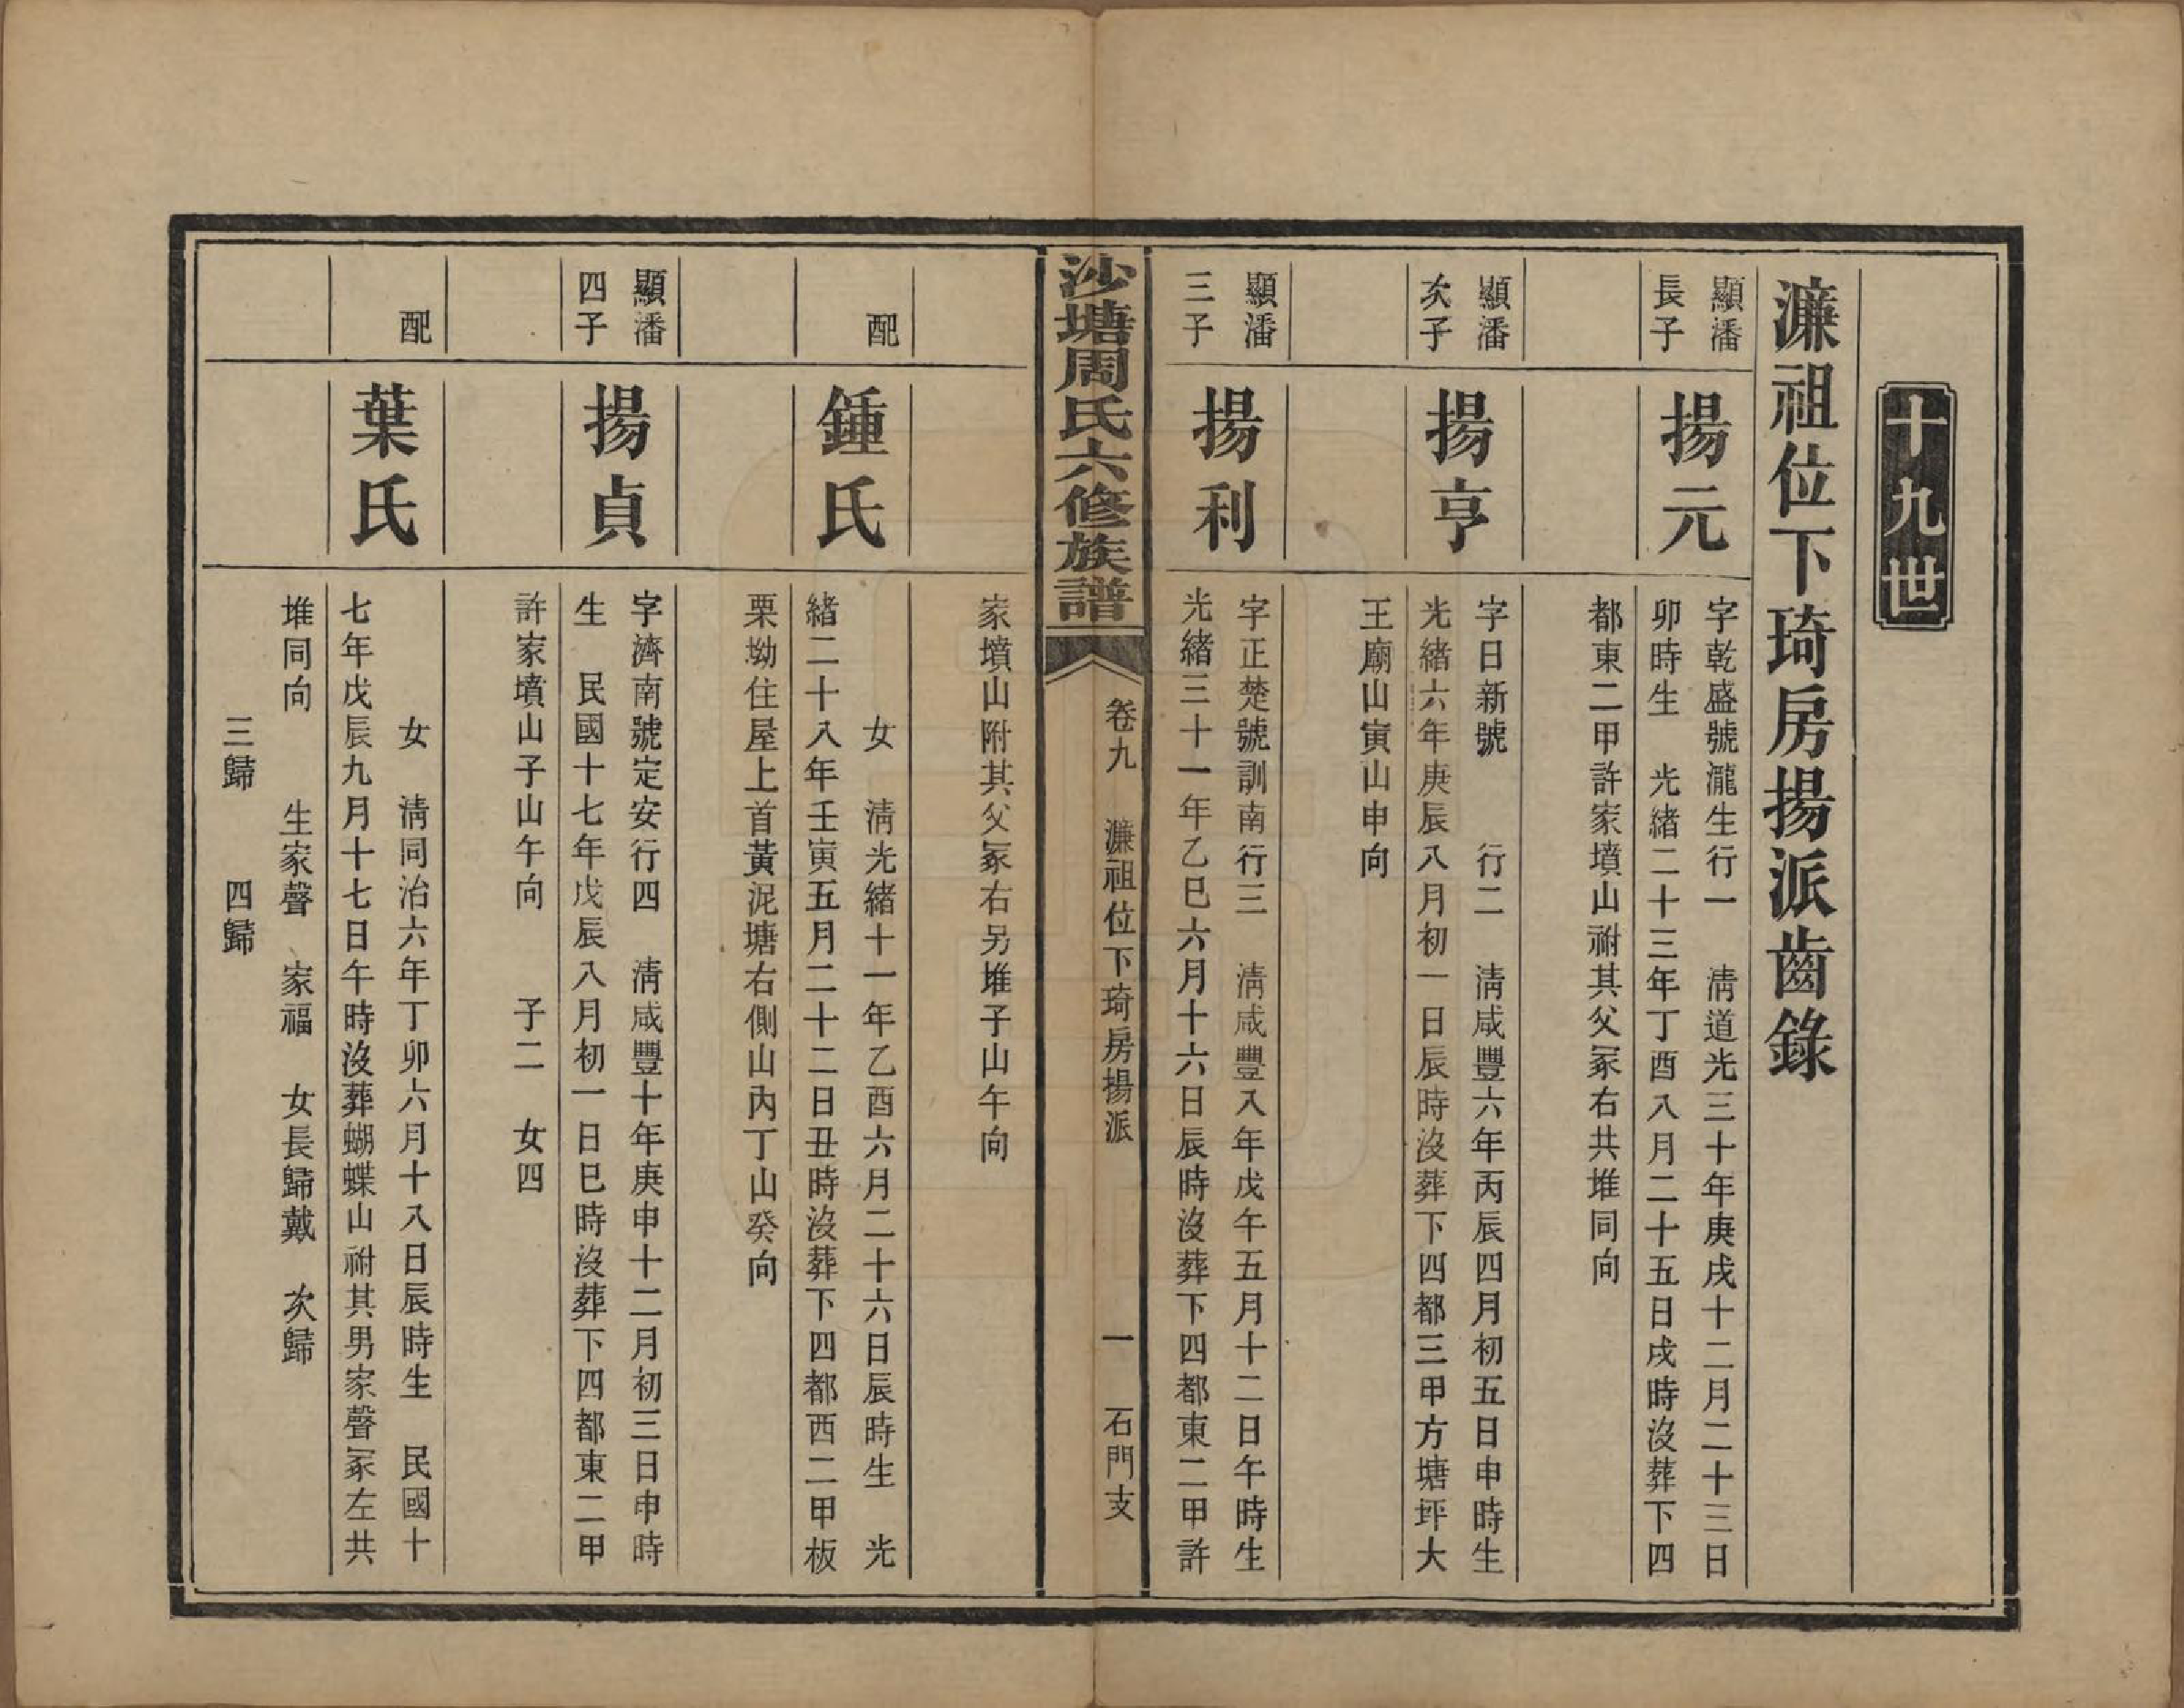 十九世
濂祖位下琦房揚派齒錄
顯潘
長子
揚元
字乾盛號瀧生行一　淸道光三十年庚戌十二月二十三日
卯時生　光緒二十三年丁酉八月二十五日戌時沒葬下四
都東二甲許家墳山祔其父冢右共堆同向
顯潘
次子
揚亨
字日新號　　行二　淸咸豐六年丙辰四月初五日申時生
光緒六年庚辰八月初一日辰時沒葬下四都三甲方塘坪大
王廟山寅山申向
顯潘
三子
揚利
字正楚號訓南行三　淸咸豐八年戊午五月十二日午時生
光緒三十一年乙巳六月十六日辰時沒葬下四都東二甲許
沙塘周氏六修族譜
卷九　濂祖位下琦房揚派　一　石門支
家墳山附其父冢右另堆子山午向
配
鍾氏
女　淸光緒十一年乙酉六月二十六日辰時生　光
緒二十八年壬寅五月二十二日丑時沒葬下四都西二甲板
栗坳住屋上首黃泥塘右側山內丁山癸向
顯潘
四子
揚貞
字濟南號定安行四　淸咸豐十年庚申十二月初三日申時
生　民國十七年戊辰八月初一日巳時沒葬下四都東二甲
許家墳山子山午向　　子二　女四
配
葉氏
女　淸同治六年丁卯六月十八日辰時生　民國十
七年戊辰九月十七日午時沒葬蝴蝶山祔其男家聲冢左共
堆同向　　生家聲　家福　女長歸戴　次歸
三歸　　四歸